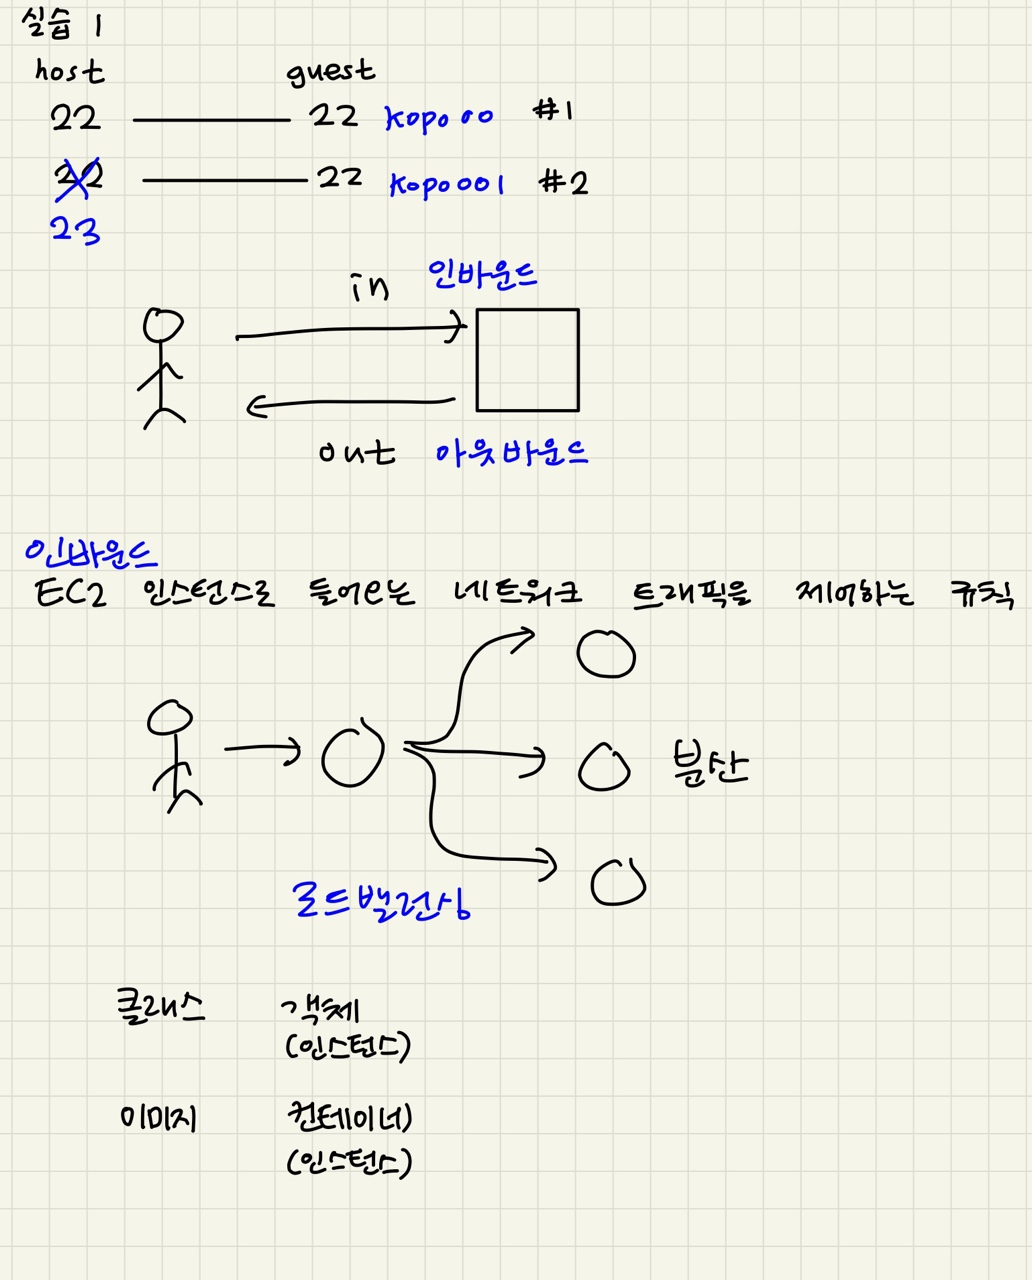 실습 1
host guest
22 22 kopo00 #1
22 22 kopo001 #2
23
in 인바운드
out 아웃바운드
인바운드
EC2 인스턴스로 들어오는 네트워크 트래픽을 제어하는 규칙
분산
로드밸런싱
클래스 객체
(인스턴스)
이미지 컨테이너)
(인스턴스)